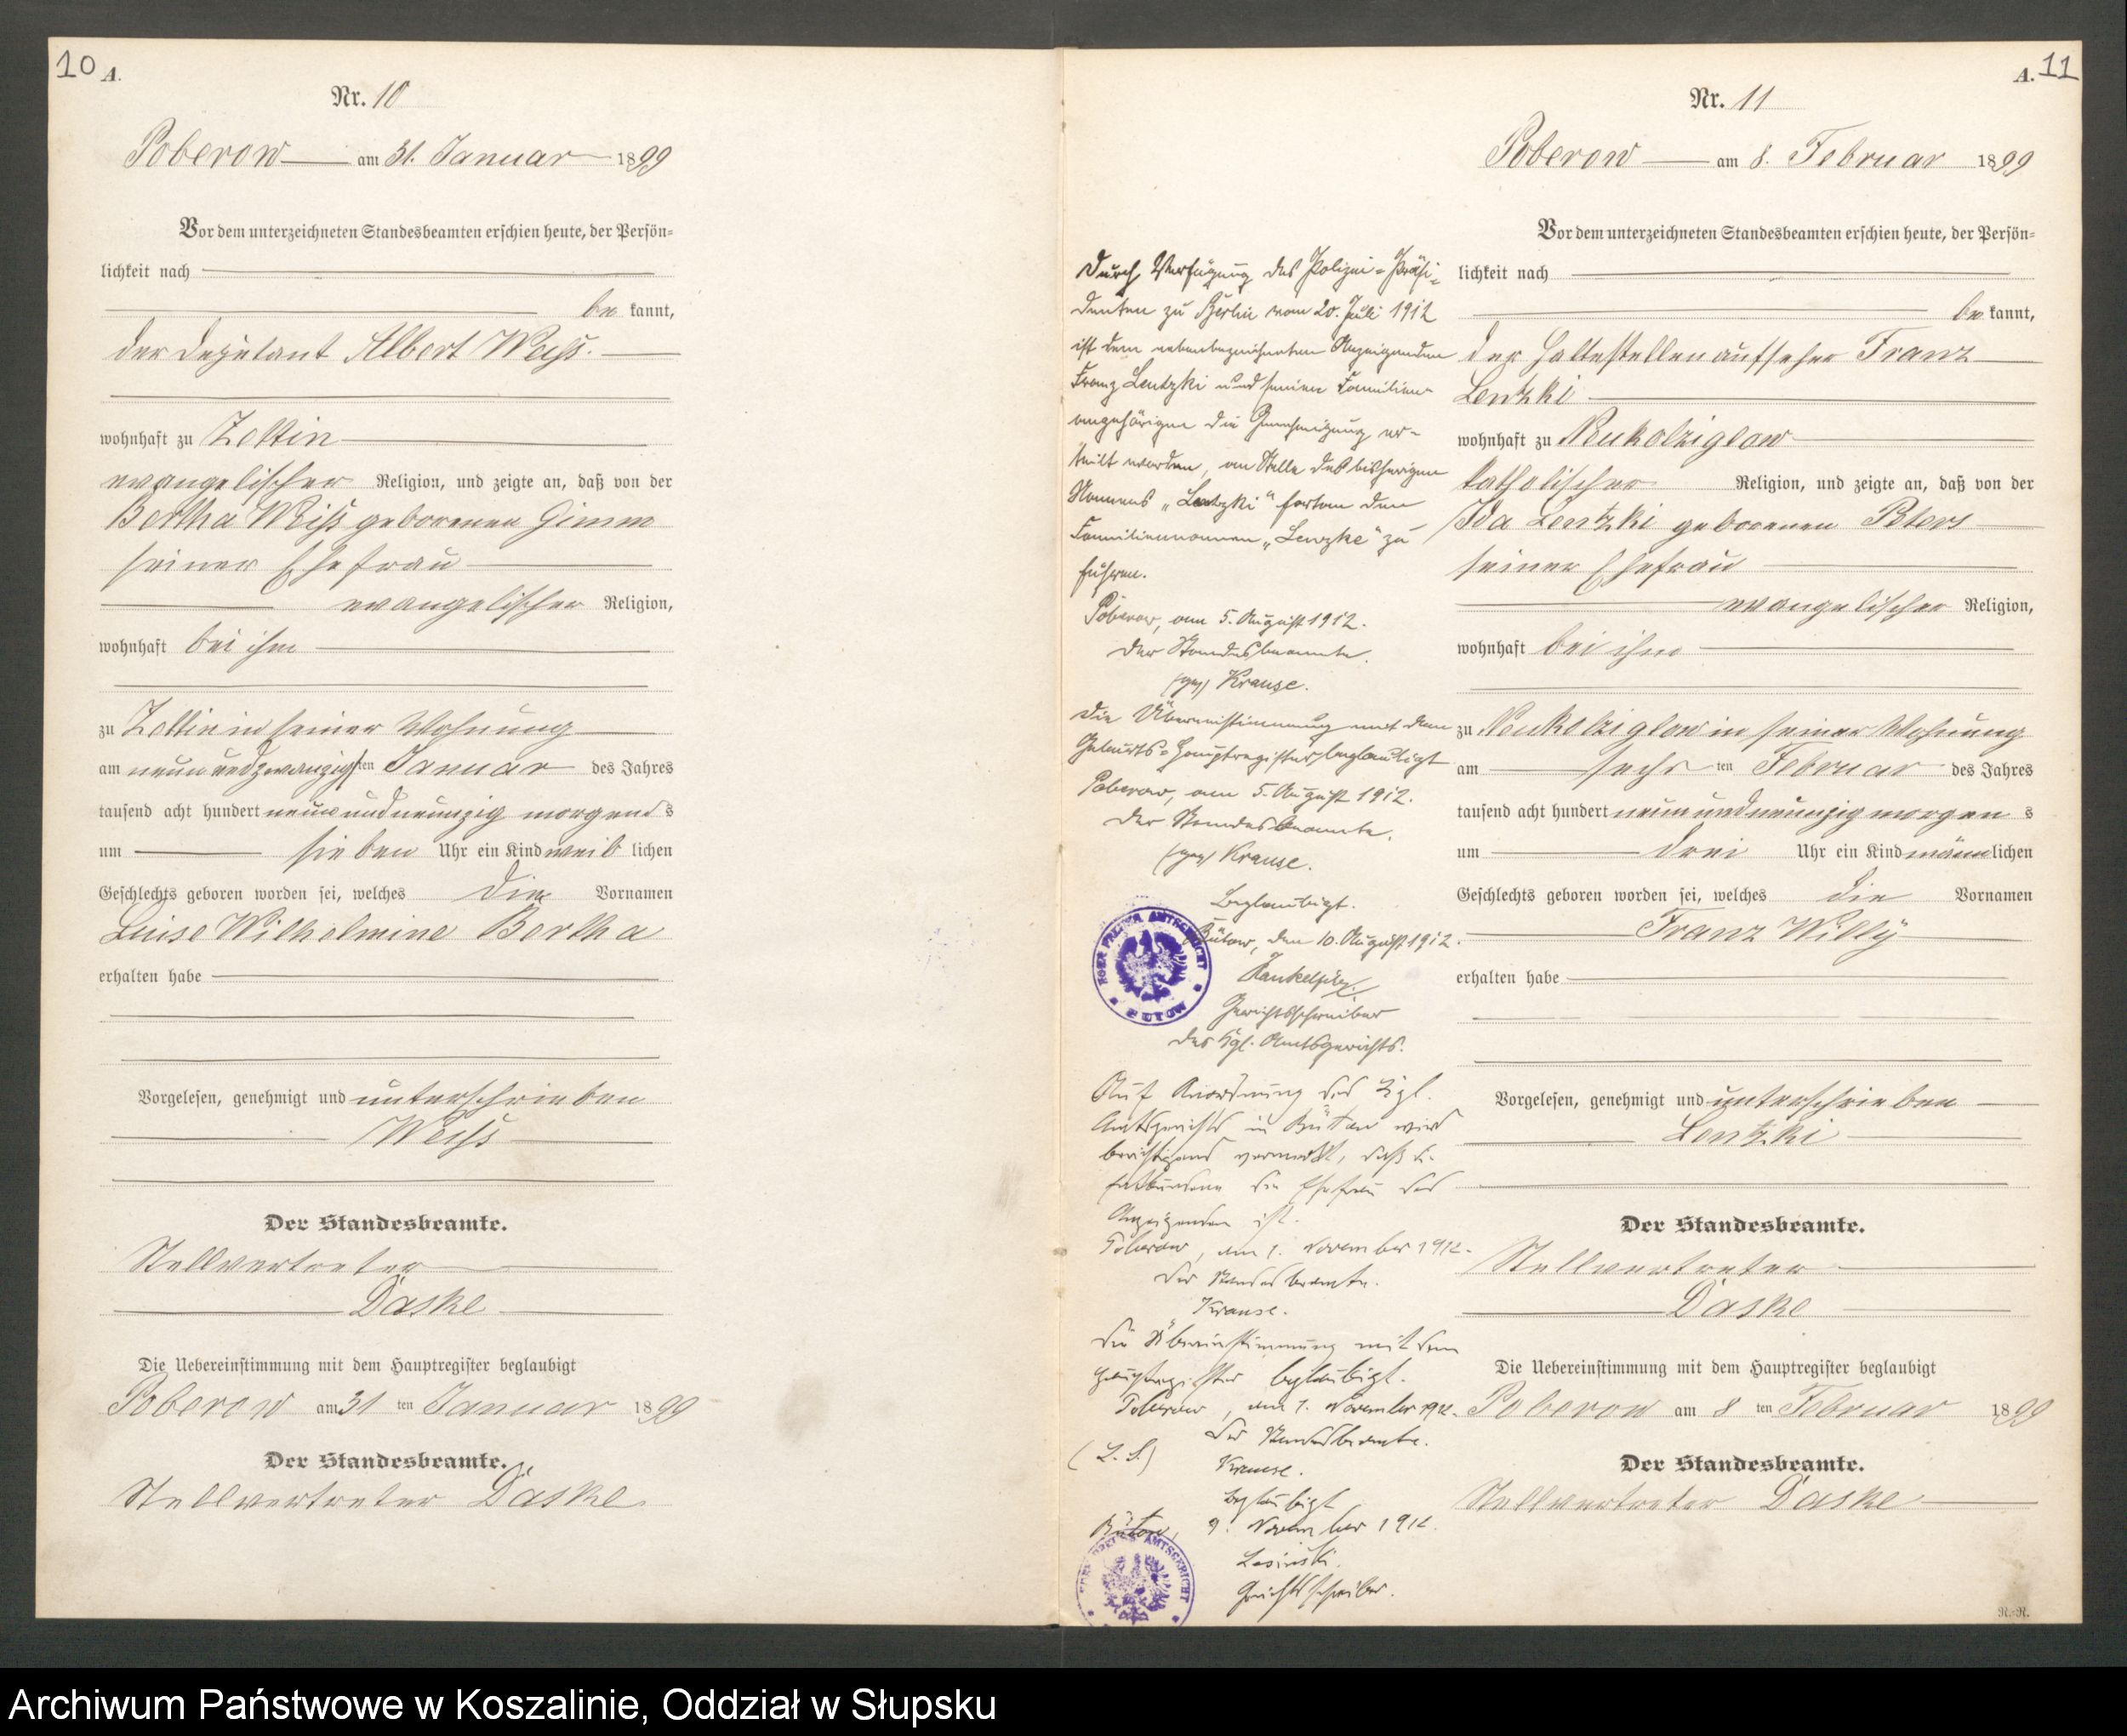 10 A.
Nr. 10
Poberow am 31. Januar 1899
Vor dem unterzeichneten Standesbeamten erschien heute, der Persön-
lichkeit nach
be kannt,
der Deputant Albert Weiss.
wohnhaft zu Zettin
evangelischer Religion, und zeigte an, daß von der
Bertha Weiss geborenen Gimm
seiner Ehefrau
evangelischer Religion,
wohnhaft bei ihm
zu Zettin in seiner Wohnung
am neun und zwanzigsten Januar des Jahres
tausend acht hundert neun und neunzig morgens
um sieben Uhr ein Kind weib lichen
Geschlechts geboren worden sei, welches die Vornamen
Luise Wilhelmine Bertha
erhalten habe
Vorgelesen, genehmigt und unterschrieben
Weiss
Der Standesbeamte.
Stellvertreter
Daske
Die Uebereinstimmung mit dem Hauptregister beglaubigt
Poberow am 31 ten Januar 1899
Der Standesbeamte.
Stellvertreter Daske
A. 11
Nr. 11
Poberow am 8. Februar 1899
Vor dem unterzeichneten Standesbeamten erschien heute, der Persön-
lichkeit nach
be kannt,
der Haltestellenaufseher Franz
Lentzki
wohnhaft zu Neukolziglow
katholischer Religion, und zeigte an, daß von der
Ida Lentzki geborenen Peters
seiner Ehefrau
evangelischer Religion,
wohnhaft bei ihm
zu Neukolziglow in seiner Wohnung
am sechs ten Februar des Jahres
tausend acht hundert neun und neunzig morgens
um drei Uhr ein Kind männlichen
Geschlechts geboren worden sei, welches die Vornamen
Franz Willy
erhalten habe
Vorgelesen, genehmigt und unterschrieben
Lentzki
Der Standesbeamte.
Stellvertreter
Daske
Die Uebereinstimmung mit dem Hauptregister beglaubigt
Poberow am 8 ten Februar 1899
Der Standesbeamte.
Stellvertreter Daske
R.-R.
Durch Verfügung des Polizei-Präsi-
denten zu Berlin vom 20. Juli 1912
ist dem nebenbezeichneten Anzeigenden
Franz Lentzki und seinen Familien-
angehörigen die Genehmigung er-
teilt worden, an Stelle des bisherigen
Namens „Lentzki“ fortan den
Familiennamen „Lenzke“ zu
führen.
Poberow, am 5. August 1912.
Der Standesbeamte.
(gez) Krause.
Die Übereinstimmung mit dem
Geburts-Hauptregister beglaubigt
Poberow, am 5. August 1912.
Der Standesbeamte.
(gez) Krause.
Beglaubigt.
Bütow, den 10. August 1912.
Gerichtsschreiber
des Kgl. Amtsgerichts.
KÖNIGL. PREUSS. AMTSGERICHT
BÜTOW
Auf Anordnung des Kgl.
Amtsgerichts in Bütow wird
berichtigend vermerkt, daß die
Entbundene die Ehefrau des
Anzeigenden ist.
Poberow, am 1. November 1912.
Der Standesbeamte.
Krause.
Die Übereinstimmung mit dem
Hauptregister beglaubigt.
Poberow, am 1. November 1912.
Der Standesbeamte.
(L. S.) Krause.
Beglaubigt
Bütow, 9. November 1912.
Lesinski.
Gerichtsschreiber.
PREUSS. AMTSGERICHT
Archiwum Państwowe w Koszalinie, Oddział w Słupsku